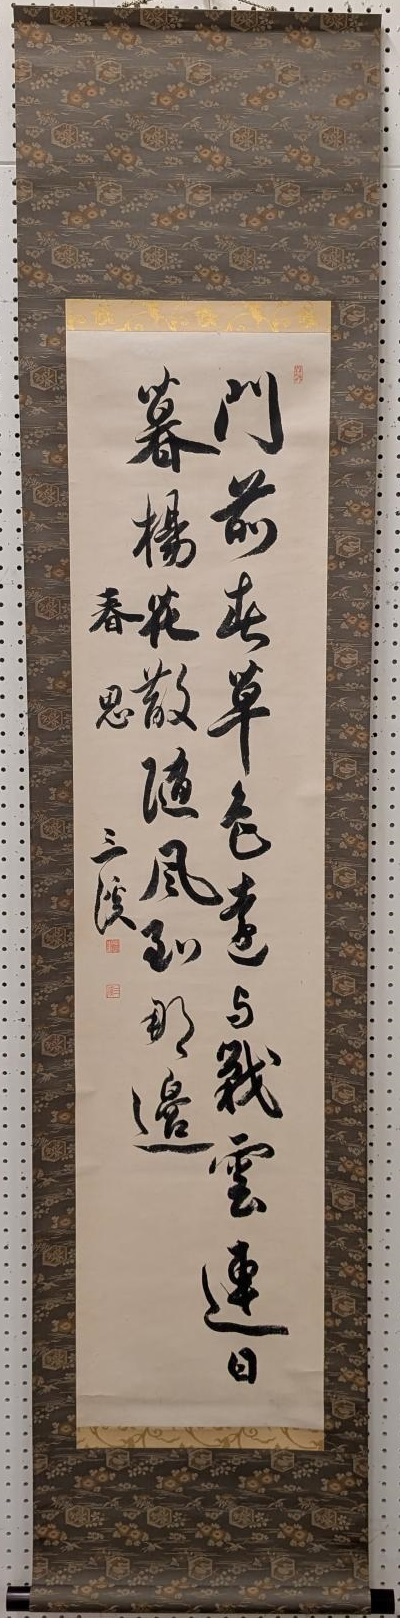 門前春草色遠与戰雲連日
暮楊花散随風到那邉
春思
三溪